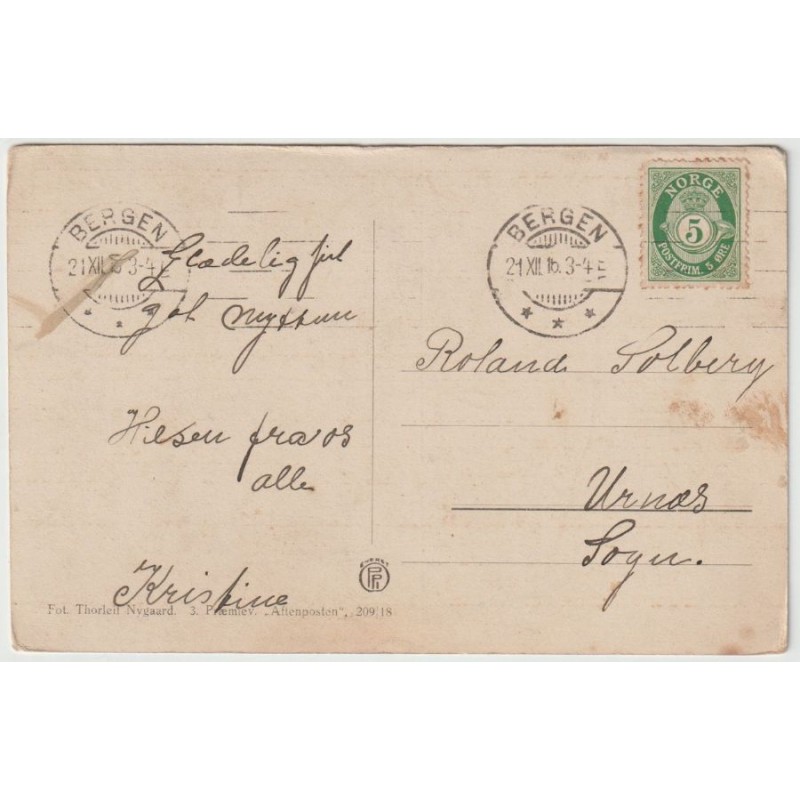 BERGEN
21 XII. 3-4 E
Glædelig jul
godt nyttaar
Hilsen fra os
alle
Kristine
Fot. Thorleif Nygaard. 3. Præmiev. „Aftenposten", 209/18
BERGEN
21 XII. 16. 3-4 E
NORGE
5
POSTFRIM. 5 ØRE
Roland Solberg
Urnæs
Sogn.